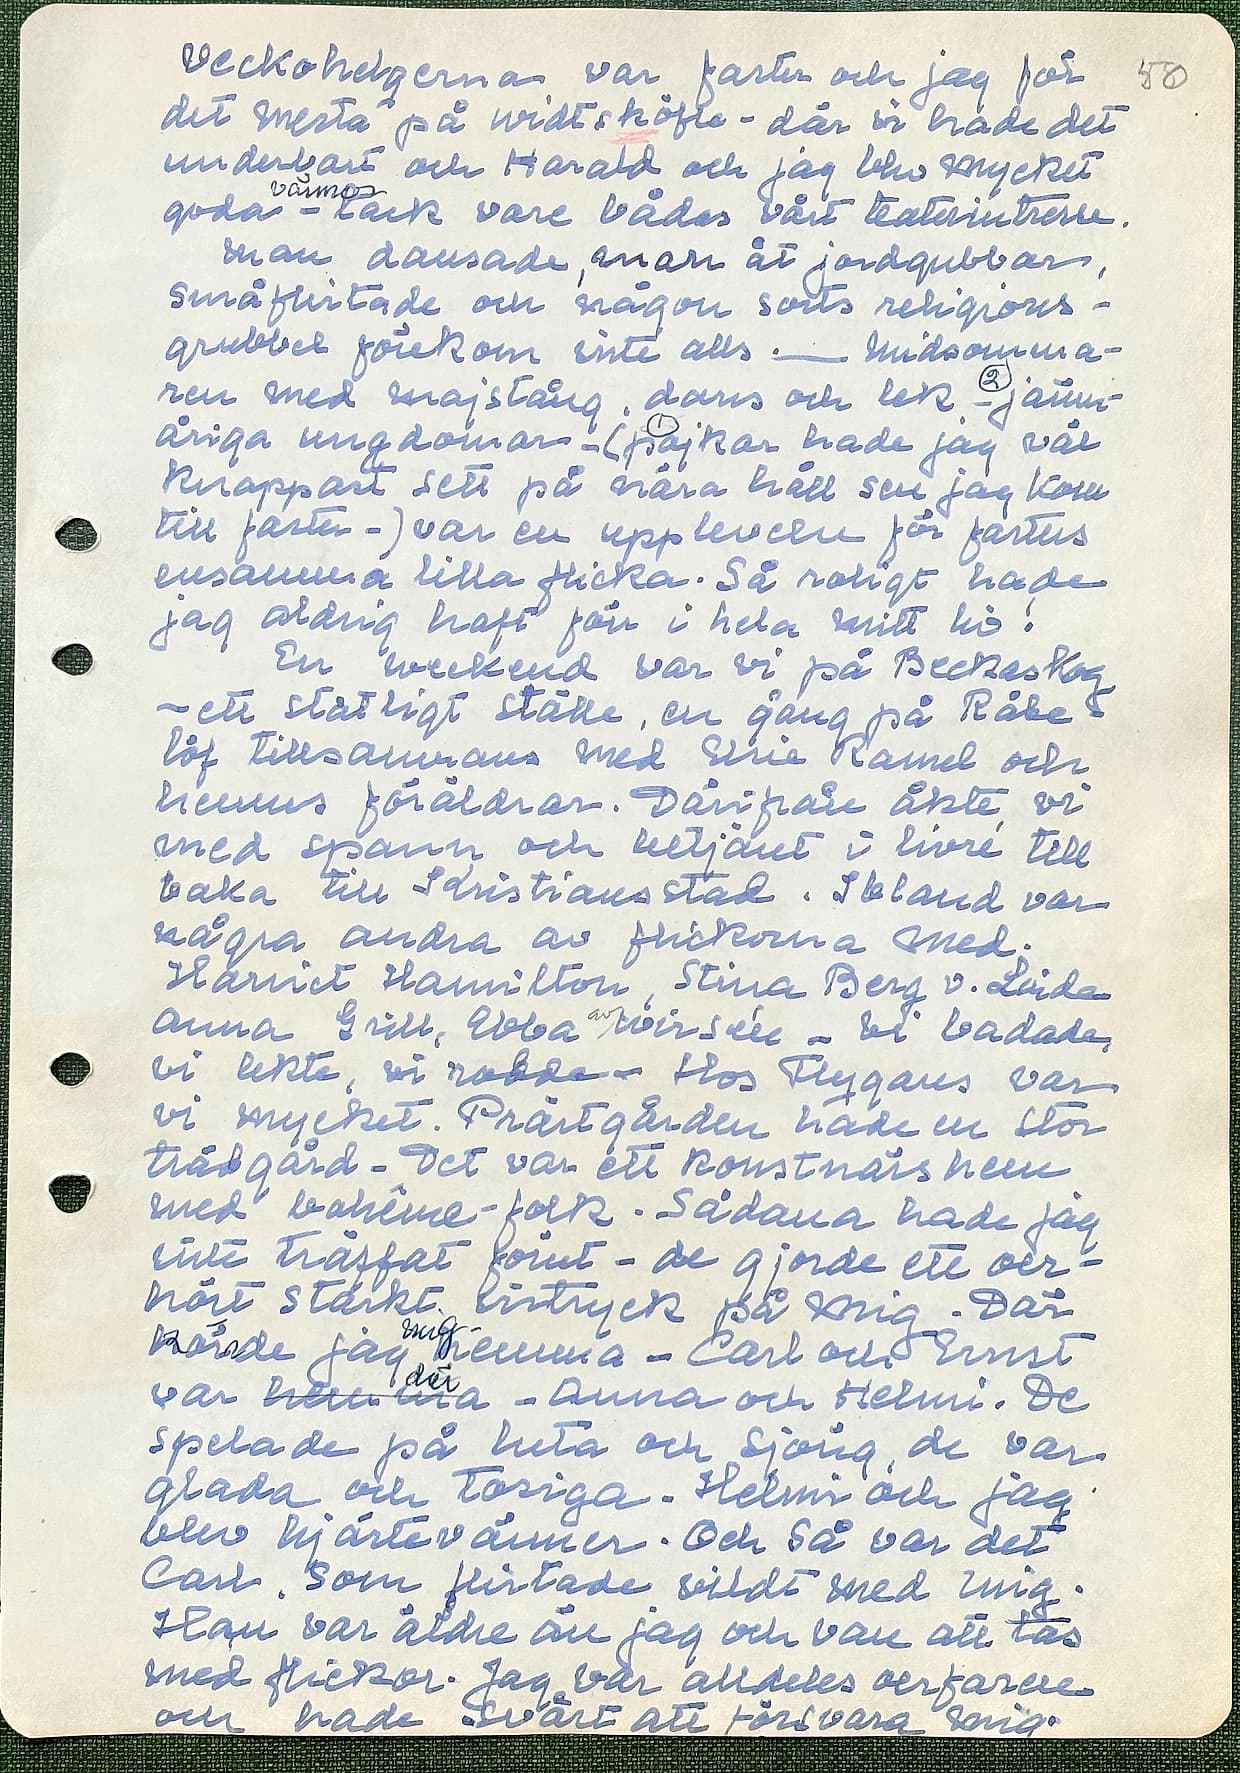 50
Veckohelgerna var faster och jag för
det mesta på Widtsköfle - där vi hade det
underbart och Harald och jag blev mycket
goda vänner - tack vare bådas vårt teaterintresse.
Man dansade, man åt jordgubbar,
småflirtade och någon sorts religions-
grubbel förekom inte alls. — Midsomma-
ren med majstång, dans och lek - 2 jämn-
åriga ungdomar - (1 pojkar hade jag väl
knappart sett på nära håll sen jag kom
till faster -) var en upplevelse för fasters
ensamma lilla flicka. Så roligt hade
jag aldrig haft förr i hela mitt liv!
En weekend var vi på Beckaskog
- ett ståtligt ställe, en gång på Råbe-
löf tillsammans med Elsie Ramel och
hennes föräldrar. Därifrån åkte vi
med spann och betjänt i livré till
baka till Kristiansstad. Ibland var
några andra av flickorna med.
Harriet Hamilton, Stina Berg v. Linde
Anna Grill, Ebba av Wirsén - Vi badade,
vi lekte, vi rodde - Hos Flygares var
vi mycket. Prästgården hade en stor
trädgård - Det var ett konstnärshem
med bohême-folk. Sådana hade jag
inte träffat förut - de gjorde ett oer-
hört starkt intryck på mig. Där
kände jag mig hemma - Carl och Ernst
var hemma där - Anna och Helmi. De
spelade på luta och sjöng, de var
glada och tosiga. Helmi och jag
blev hjärtevänner. Och så var det
Carl, som flirtade vildt med mig.
Han var äldre än jag och van att tas
med flickor. Jag var alldeles oerfaren
och hade svårt att försvara mig.